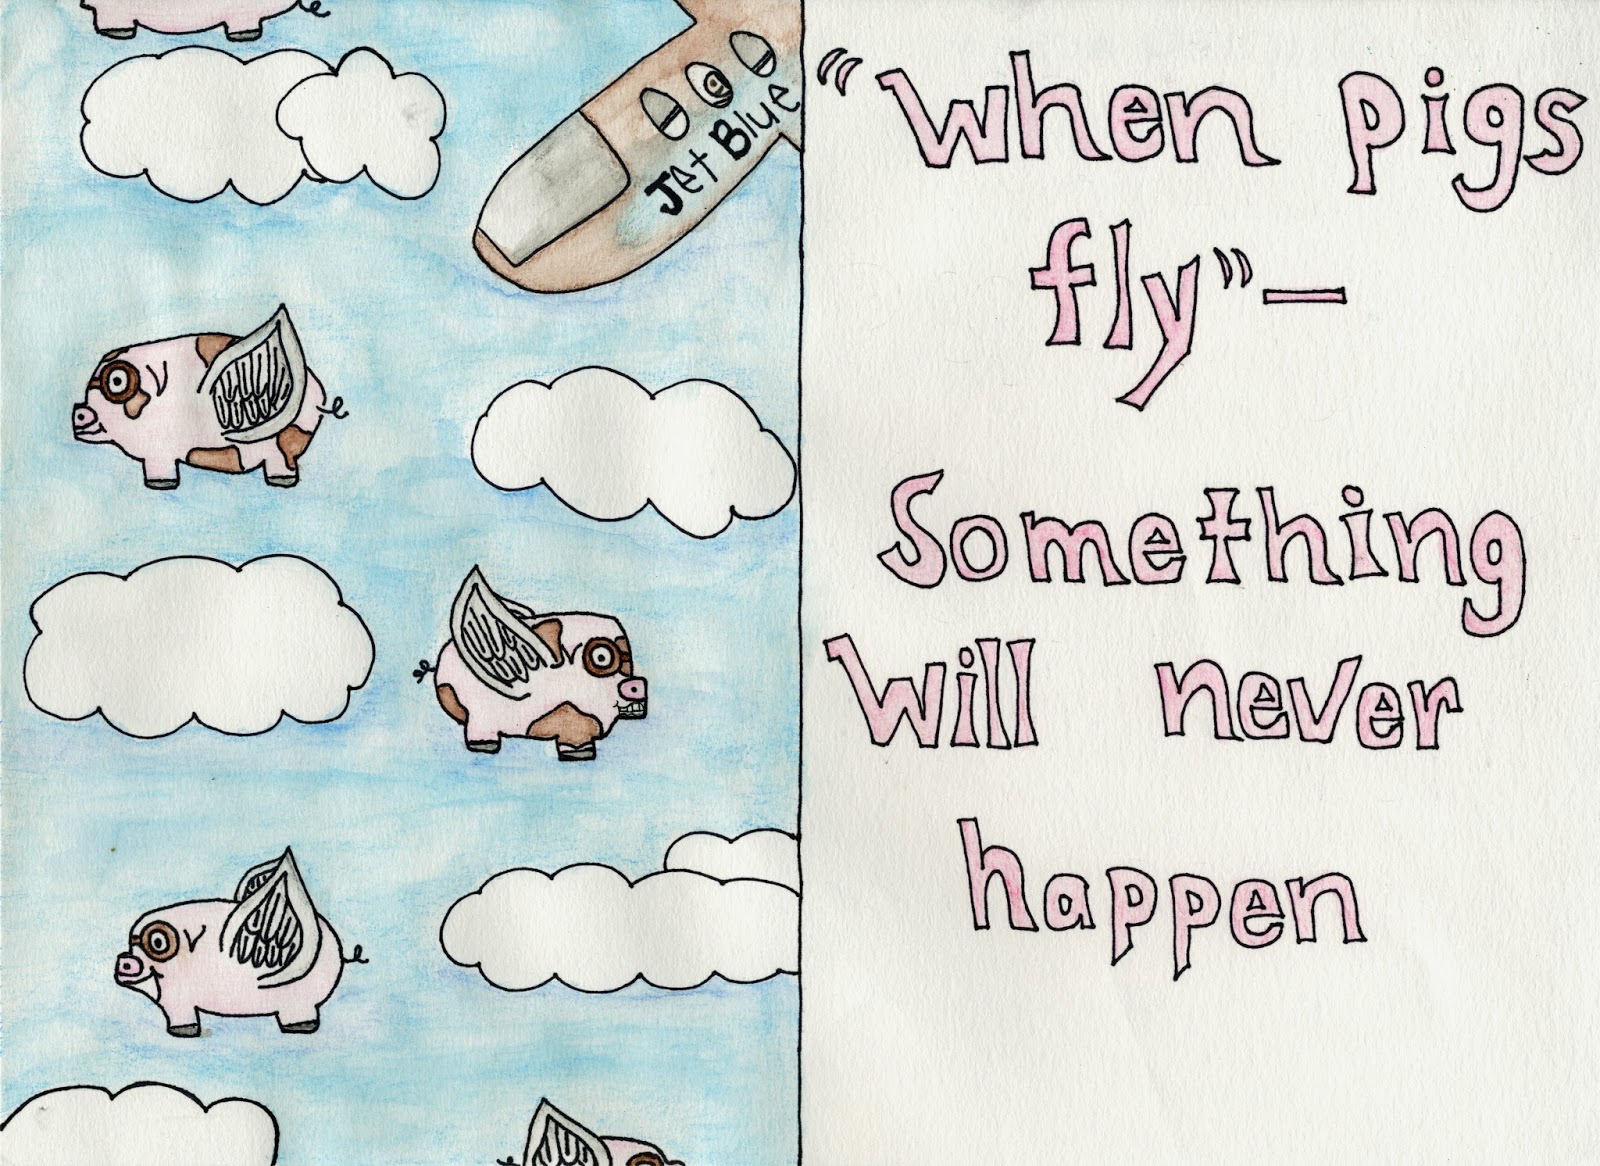 Jet Blue
"When pigs
fly"—
Something
will never
happen